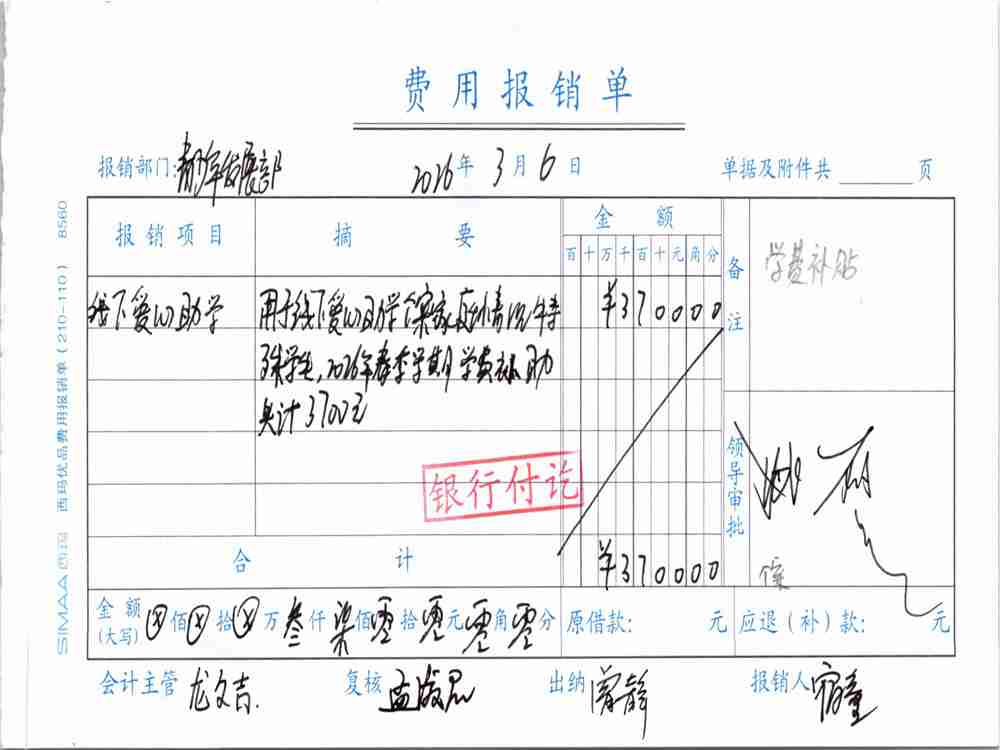 费用报销单
报销部门: 青少年发展部 2026年 3月 6日 单据及附件共 页
报销项目 摘要 金额 备注 学费补贴
百 十 万 千 百 十 元 角 分
线下爱心助学 用于线下爱心助学家庭情况特 ¥370000
殊学生,2026年春季学期学费补助
共计3700元
银行付讫
领导审批
合计 ¥370000
金额(大写) ⊗佰⊗拾⊗万叁仟柒佰零拾零元零角零分 原借款: 元 应退(补)款: 元
会计主管 龙文吉. 复核 出纳 曾静 报销人
SIMAA 西玛 西玛优品费用报销单(210-110) 8560